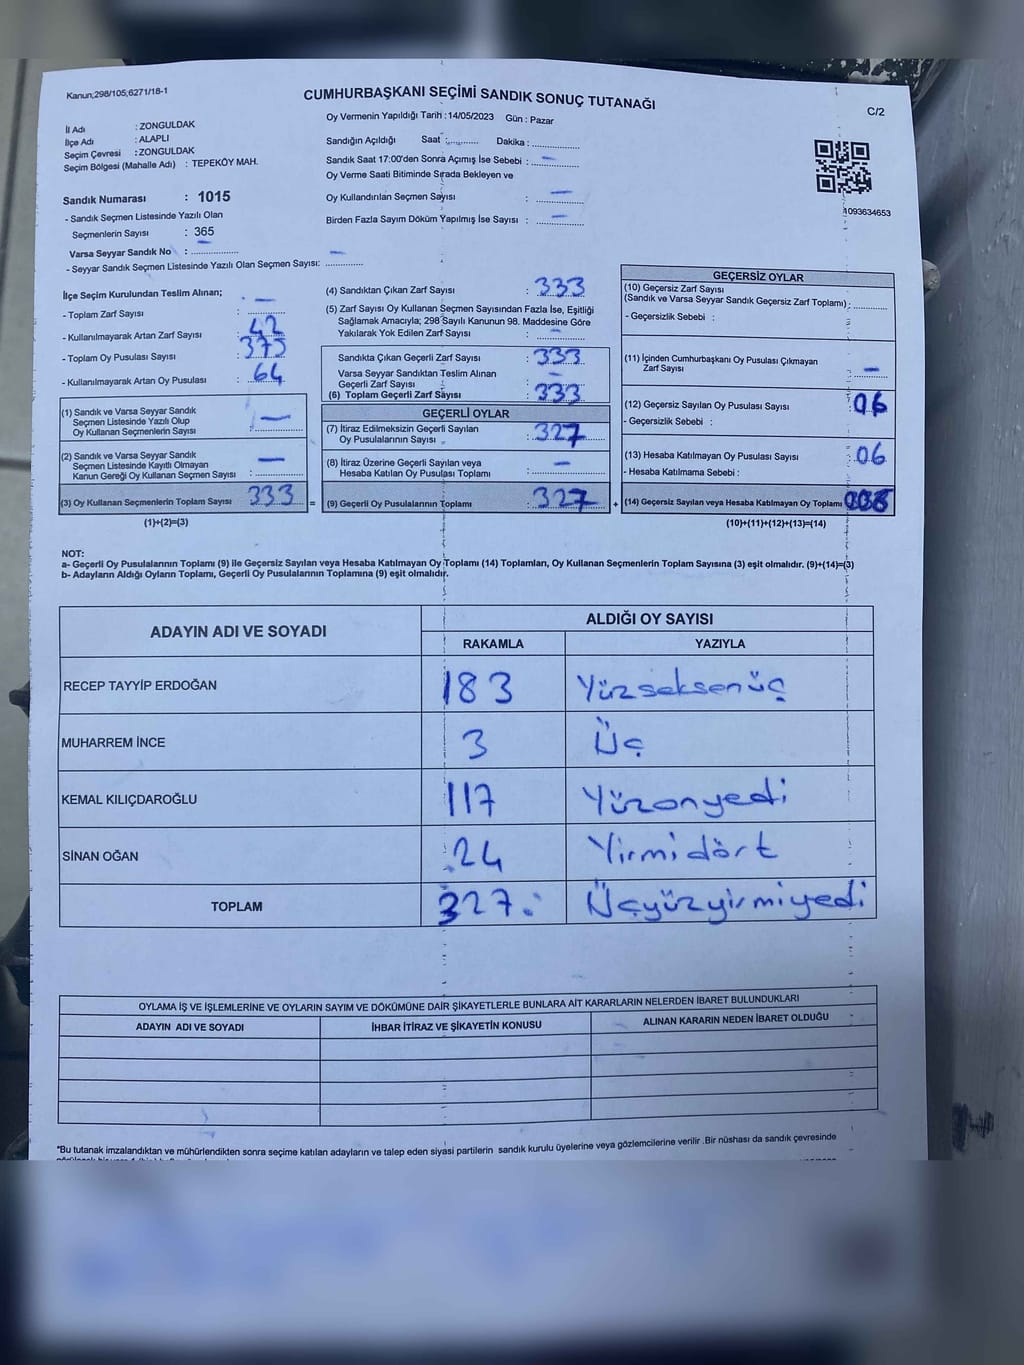 Kanun;298/105;6271/18-1
CUMHURBAŞKANI SEÇİMİ SANDIK SONUÇ TUTANAĞI
C/2
İl Adı : ZONGULDAK
İlçe Adı : ALAPLI
Seçim Çevresi : ZONGULDAK
Seçim Bölgesi (Mahalle Adı) : TEPEKÖY MAH.
Oy Vermenin Yapıldığı Tarih : 14/05/2023 Gün : Pazar
Sandığın Açıldığı Saat : Dakika :
Sandık Saat 17:00'den Sonra Açımış İse Sebebi : –
Oy Verme Saati Bitiminde Sırada Bekleyen ve
Oy Kullandırılan Seçmen Sayısı : –
Birden Fazla Sayım Döküm Yapılmış İse Sayısı : –
4093634653
Sandık Numarası : 1015
- Sandık Seçmen Listesinde Yazılı Olan
Seçmenlerin Sayısı : 365
Varsa Seyyar Sandık No : –
- Seyyar Sandık Seçmen Listesinde Yazılı Olan Seçmen Sayısı: –
İlçe Seçim Kurulundan Teslim Alınan;
- Toplam Zarf Sayısı : –
- Kullanılmayarak Artan Zarf Sayısı : 42
- Toplam Oy Pusulası Sayısı :
- Kullanılmayarak Artan Oy Pusulası : 64
(1) Sandık ve Varsa Seyyar Sandık
Seçmen Listesinde Yazılı Olup
Oy Kullanan Seçmenlerin Sayısı : –
(2) Sandık ve Varsa Seyyar Sandık
Seçmen Listesinde Kayıtlı Olmayan
Kanun Gereği Oy Kullanan Seçmen Sayısı : –
(3) Oy Kullanan Seçmenlerin Toplam Sayısı : 333
(1)+(2)=(3)
(4) Sandıktan Çıkan Zarf Sayısı : 333
(5) Zarf Sayısı Oy Kullanan Seçmen Sayısından Fazla İse, Eşitliği
Sağlamak Amacıyla; 298 Sayılı Kanunun 98. Maddesine Göre
Yakılarak Yok Edilen Zarf Sayısı : –
Sandıkta Çıkan Geçerli Zarf Sayısı : 333
Varsa Seyyar Sandıktan Teslim Alınan
Geçerli Zarf Sayısı : –
(6) Toplam Geçerli Zarf Sayısı : 333
GEÇERLİ OYLAR
(7) İtiraz Edilmeksizin Geçerli Sayılan
Oy Pusulalarının Sayısı : 327
(8) İtiraz Üzerine Geçerli Sayılan veya
Hesaba Katılan Oy Pusulası Toplamı : –
= (9) Geçerli Oy Pusulalarının Toplamı : 327 +
GEÇERSİZ OYLAR
(10) Geçersiz Zarf Sayısı
(Sandık ve Varsa Seyyar Sandık Geçersiz Zarf Toplamı) :
- Geçersizlik Sebebi :
(11) İçinden Cumhurbaşkanı Oy Pusulası Çıkmayan
Zarf Sayısı : –
(12) Geçersiz Sayılan Oy Pusulası Sayısı : 06
- Geçersizlik Sebebi :
(13) Hesaba Katılmayan Oy Pusulası Sayısı : 06
- Hesaba Katılmama Sebebi :
(14) Geçersiz Sayılan veya Hesaba Katılmayan Oy Toplamı
(10)+(11)+(12)+(13)=(14)
NOT:
a- Geçerli Oy Pusulalarının Toplamı (9) ile Geçersiz Sayılan veya Hesaba Katılmayan Oy Toplamı (14) Toplamları, Oy Kullanan Seçmenlerin Toplam Sayısına (3) eşit olmalıdır. (9)+(14)=(3)
b- Adayların Aldığı Oyların Toplamı, Geçerli Oy Pusulalarının Toplamına (9) eşit olmalıdır.
ADAYIN ADI VE SOYADI
ALDIĞI OY SAYISI
RAKAMLA YAZIYLA
RECEP TAYYİP ERDOĞAN 183 Yüzseksenüç
MUHARREM İNCE 3 Üç
KEMAL KILIÇDAROĞLU 117 Yüzonyedi
SİNAN OĞAN 24 Yirmidört
TOPLAM 327 Üçyüzyirmiyedi
OYLAMA İŞ VE İŞLEMLERİNE VE OYLARIN SAYIM VE DÖKÜMÜNE DAİR ŞİKAYETLERLE BUNLARA AİT KARARLARIN NELERDEN İBARET BULUNDUKLARI
ADAYIN ADI VE SOYADI İHBAR İTİRAZ VE ŞİKAYETİN KONUSU ALINAN KARARIN NEDEN İBARET OLDUĞU
*Bu tutanak imzalandıktan ve mühürlendikten sonra seçime katılan adayların ve talep eden siyasi partilerin sandık kurulu üyelerine veya gözlemcilerine verilir .Bir nüshası da sandık çevresinde